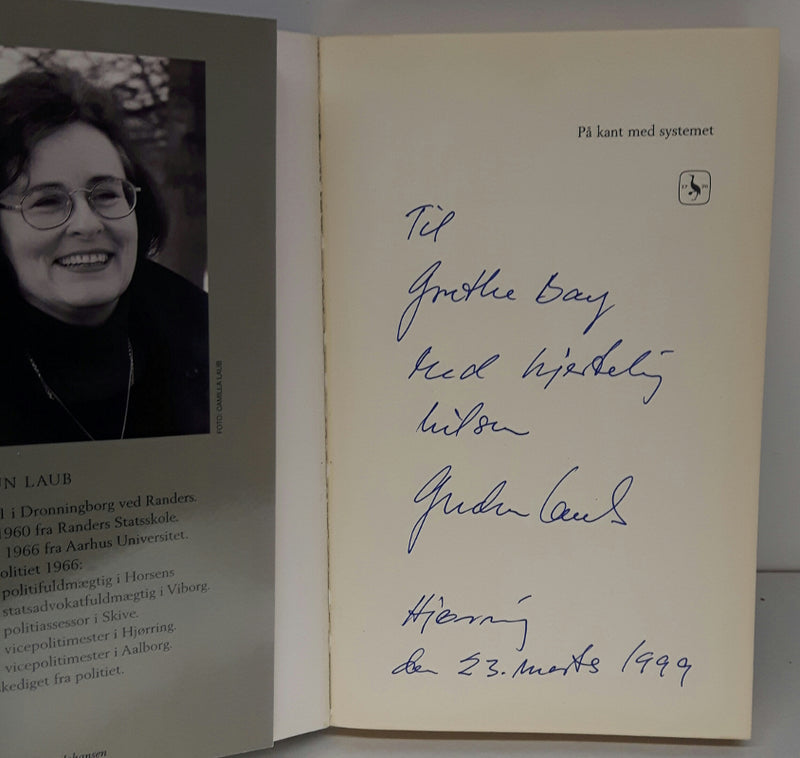 FOTO: CAMILLA LAUB
UN LAUB
1 i Dronningborg ved Randers.
1960 fra Randers Statsskole.
1966 fra Aarhus Universitet.
olitiet 1966:
politifuldmægtig i Horsens
statsadvokatfuldmægtig i Viborg.
politiassessor i Skive.
vicepolitimester i Hjørring.
vicepolitimester i Aalborg.
skediget fra politiet.
På kant med systemet
17 70
Til
Grethe Bay
med hjertelig
hilsen
Gudrun Laub
Hjørring
den 23. marts 1999